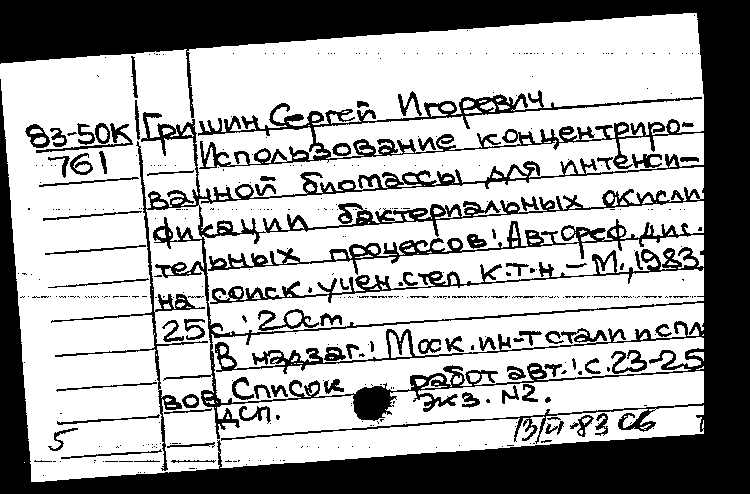 83-50К
761
Гришин, Сергей Игоревич.
Использование концентриро-
ванной биомассы для интенси-
фикации бактериальных окисли
тельных процессов: Автореф. дис.
на соиск. учен. степ. к.т.н. – М., 1983.
25 с.; 20 см.
В надзаг.: Моск. ин-т стали и спла
вов. Список работ авт.: с. 23-25
ДСП. Экз. №2.
5
83 Сб